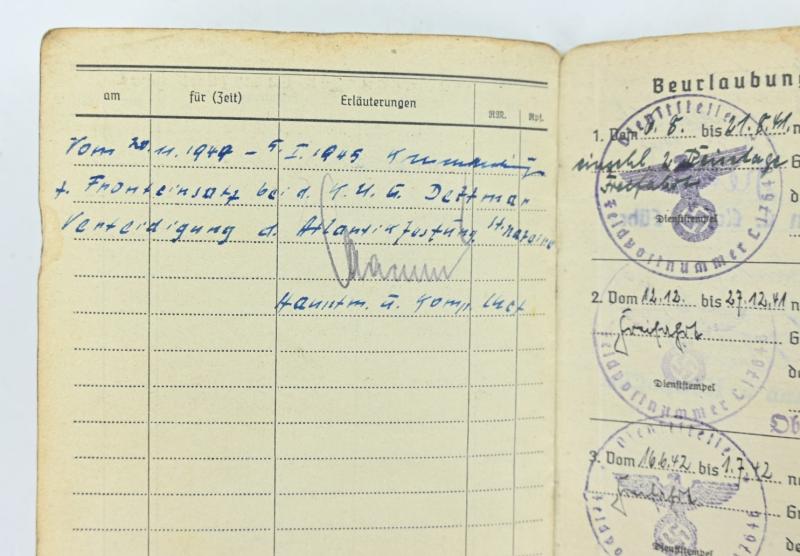 am für (Zeit) Erläuterungen RM. Rpf.
Vom 20.11.1944 - 5.I.1945
z. Fronteinsatz bei d. K.U.G. Dettmar
Verteidigung d. Atlantikfestung St. Nazaire
Hauptm. u. Komp. Chef
Beurlaubun
1. Vom 8.8. bis 21.8.41. n
einschl. 2
Freifahrt
Dienststelle
Dienststempel
Feldpostnummer L 17649
2. Vom 12.12. bis 27.12.41 n
Freifahrt
Dienststempel
Feldpostnummer L 17649
Ob
3. Vom 16.6.42 bis 1.7.42 n
Freifahrt
Dienststelle
Dienststempel